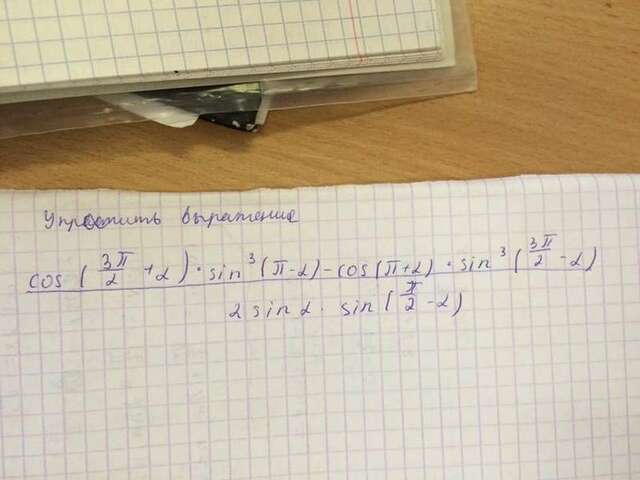 Упростить выражение
cos(3π/2 + α) · sin³(π-α) - cos(π+α) · sin³(3π/2 - α)
2 sin α · sin(π/2 - α)